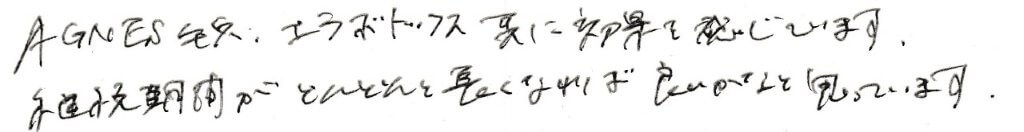 AGNES 毛穴、エラボトックス 真に効果を感じています。
継続期間がどんどんと長くなれば良いがなと思っています。